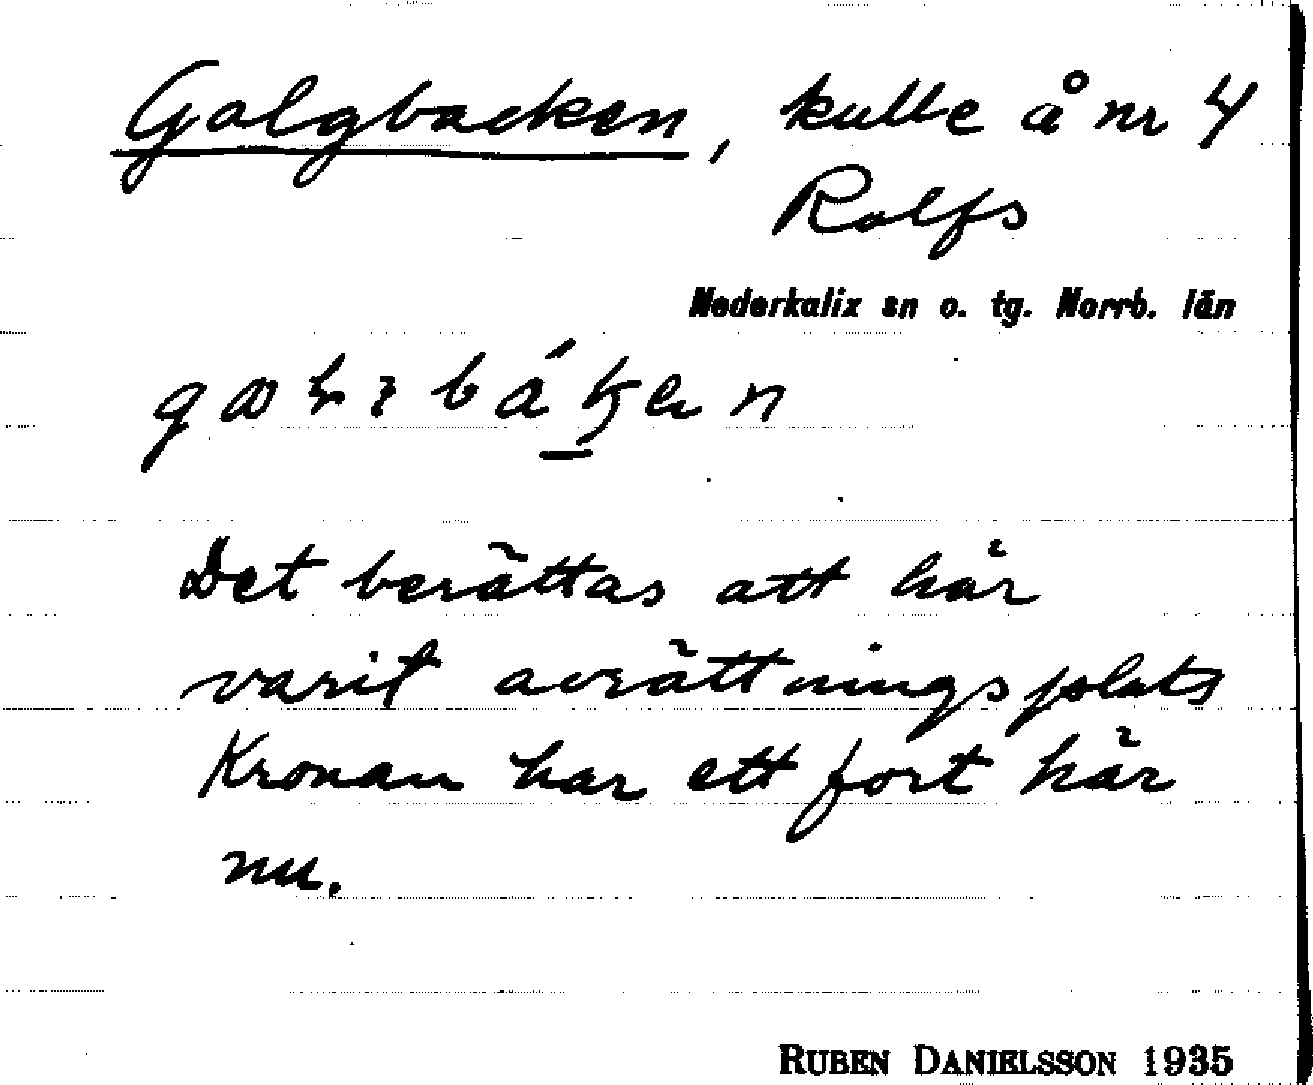 Galgbacken, kulle å nr 4
Rolfs
Nederkalix sn o. tg. Norrb. län
Det berättas att här
varit avrättningsplats
Kronan har ett fort här
nu.
RUBEN DANIELSSON 1935